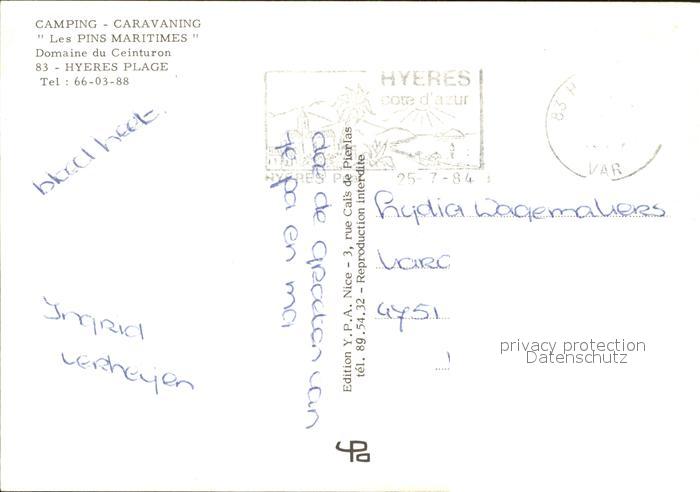 CAMPING - CARAVANING
" Les PINS MARITIMES "
Domaine du Ceinturon
83 - HYERES PLAGE
Tel : 66-03-88
HYERES
cote d'azur
HYERES P
25-7-84
83 H
VAR
heet.
doe de groeten van
je pa en ma
Ingrid
verheyen
Edition Y.P.A. Nice - 3, rue Caïs de Pierlas
tél. 89.54.32 - Reproduction interdite
Lydia Wagemakers
4751
privacy protection
Datenschutz